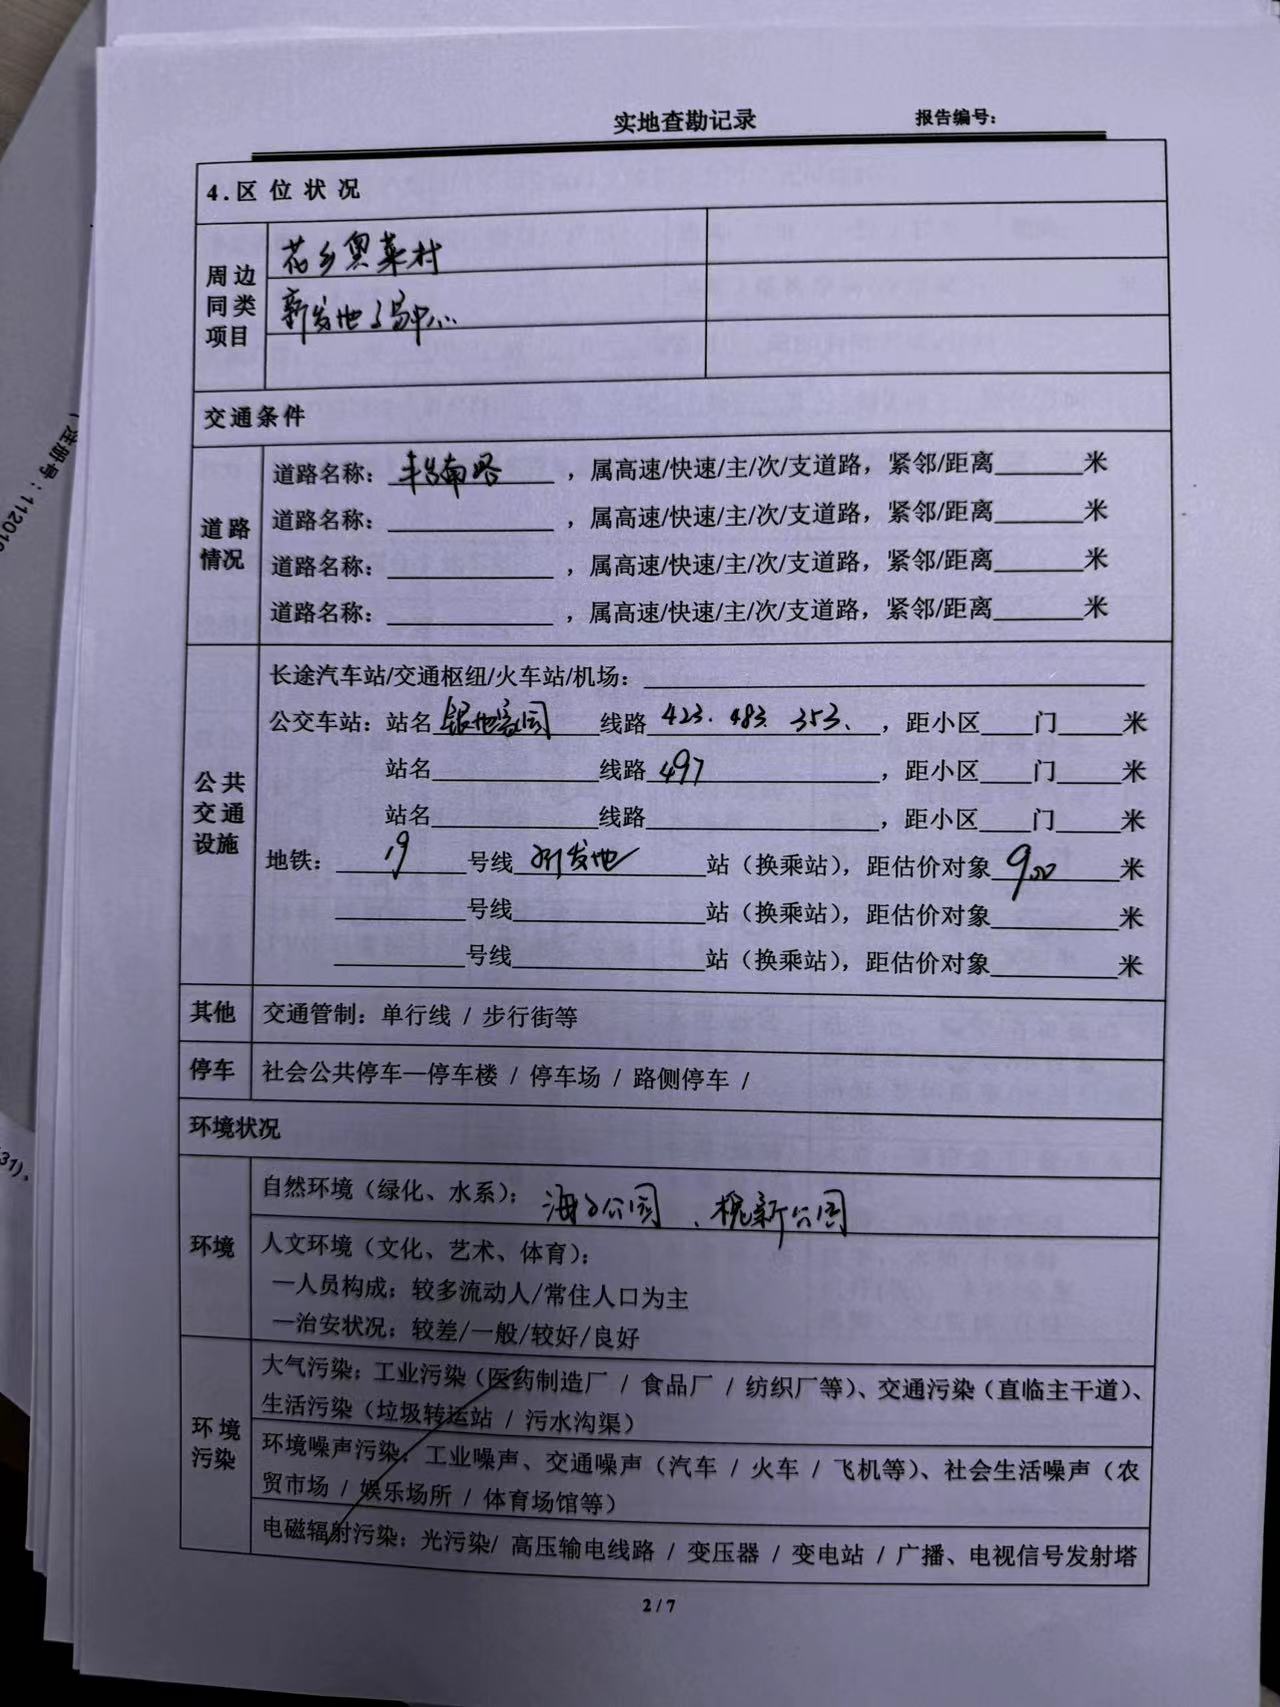 实地查勘记录 报告编号：
4.区位状况
周边同类项目
花乡奥莱村
新发地 中心
交通条件
道路情况
道路名称：南路，属高速/快速/主/次/支道路，紧邻/距离______米
道路名称：__________，属高速/快速/主/次/支道路，紧邻/距离______米
道路名称：__________，属高速/快速/主/次/支道路，紧邻/距离______米
道路名称：__________，属高速/快速/主/次/支道路，紧邻/距离______米
公共交通设施
长途汽车站/交通枢纽/火车站/机场：______________________________
公交车站：站名银地家园 线路 423、483、353、，距小区____门_____米
站名__________线路 497，距小区____门_____米
站名__________线路______________，距小区____门_____米
地铁：19号线新发地站（换乘站），距估价对象900米
________号线____________站（换乘站），距估价对象________米
________号线____________站（换乘站），距估价对象________米
其他 交通管制：单行线 / 步行街等
停车 社会公共停车—停车楼 / 停车场 / 路侧停车 /
环境状况
环境
自然环境（绿化、水系）：海子公园、槐新公园
人文环境（文化、艺术、体育）：
—人员构成：较多流动人/常住人口为主
—治安状况：较差/一般/较好/良好
环境污染
大气污染：工业污染（医药制造厂 / 食品厂 / 纺织厂等）、交通污染（直临主干道）、
生活污染（垃圾转运站 / 污水沟渠）
环境噪声污染：工业噪声、交通噪声（汽车 / 火车 / 飞机等）、社会生活噪声（农
贸市场 / 娱乐场所 / 体育场馆等）
电磁辐射污染：光污染/ 高压输电线路 / 变压器 / 变电站 / 广播、电视信号发射塔
2 / 7
（注册号：112019
31)。